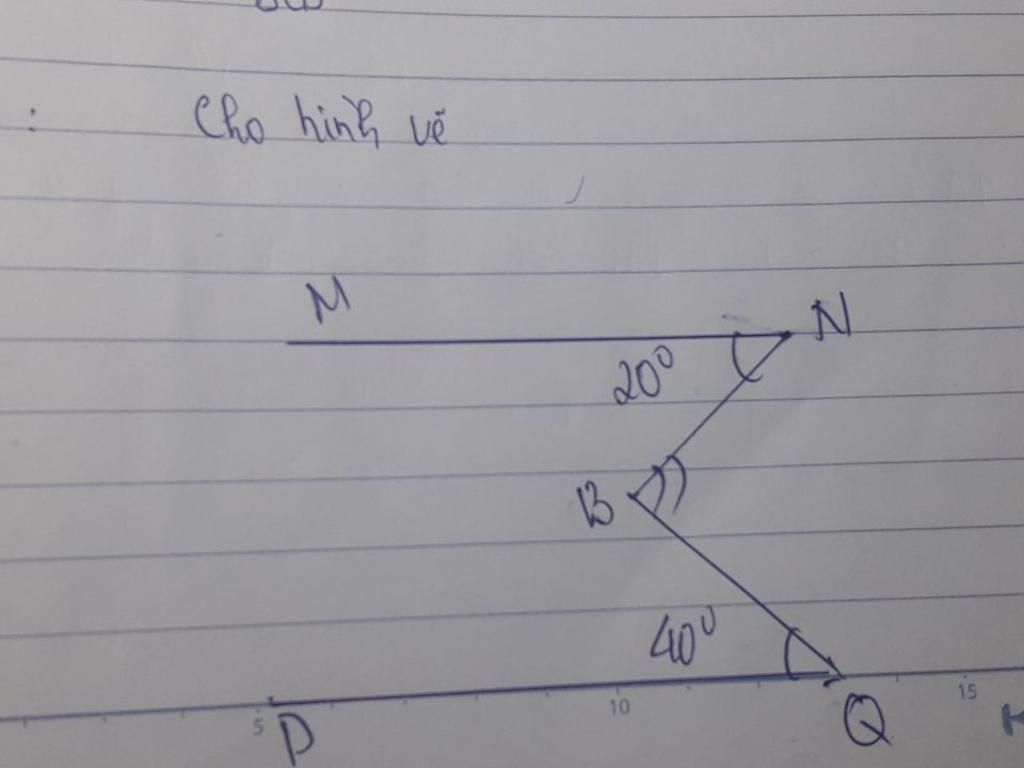 Cho hình vẽ
M
N
20⁰
B
40⁰
5
10
15
P
Q